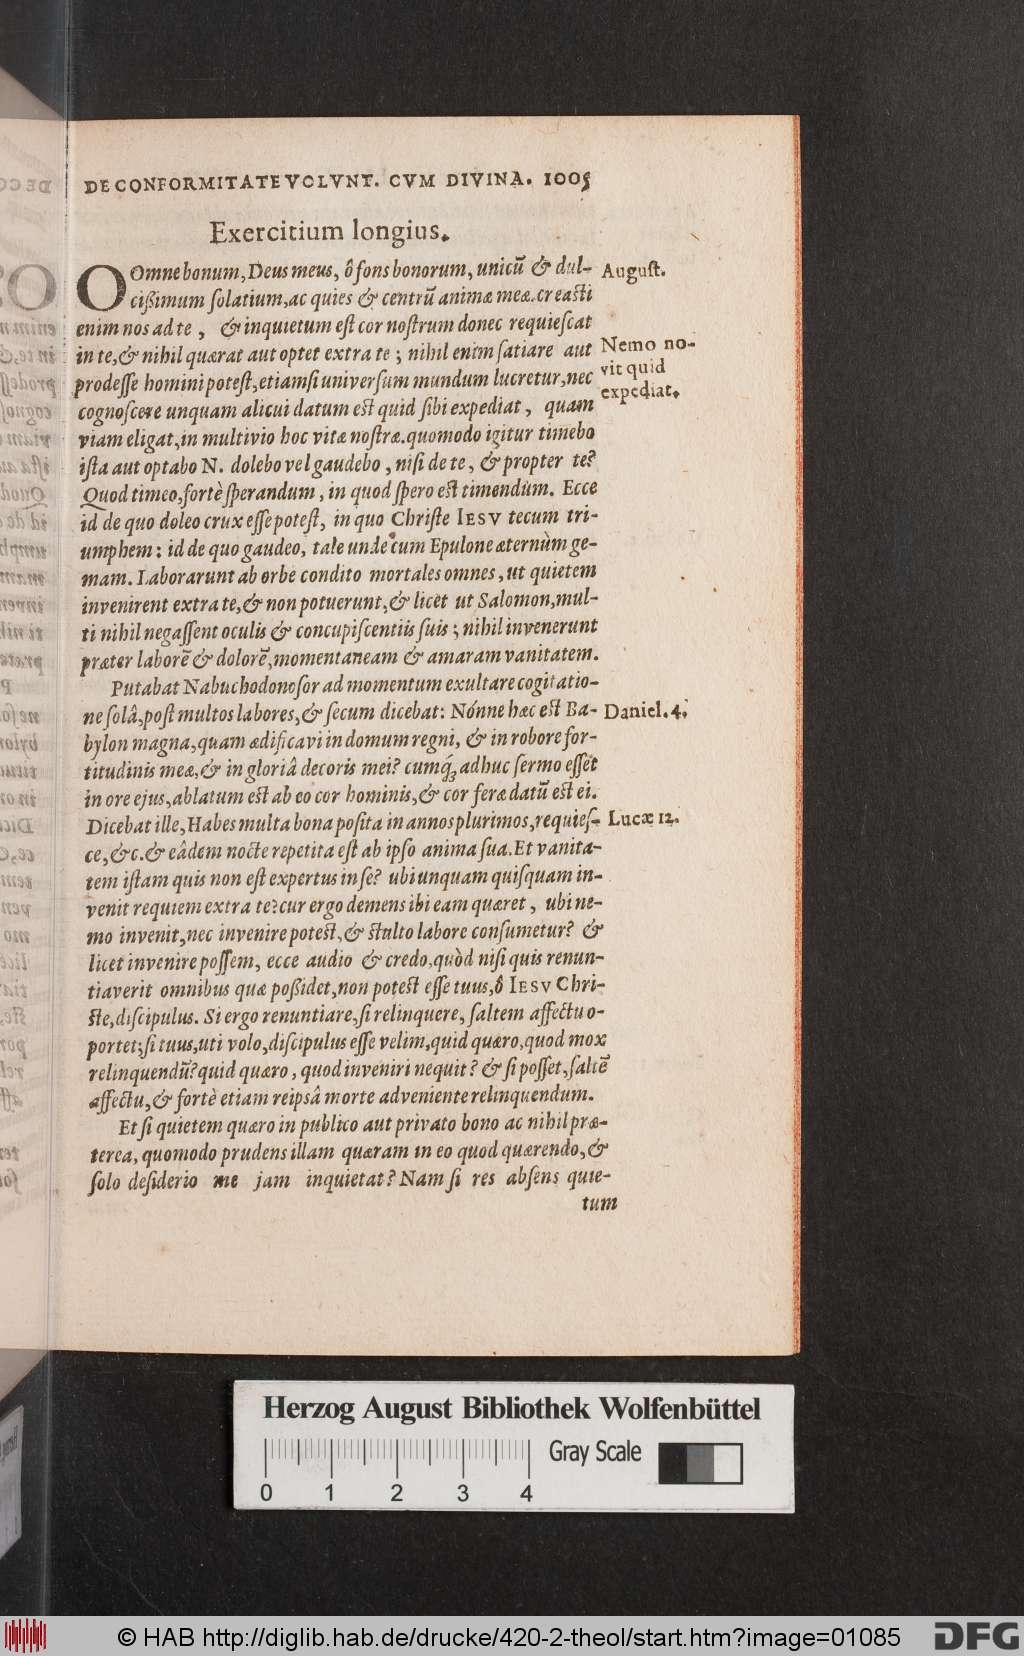 DE CONFORMITATE VOLVNT. CVM DIVINA. 1005
Exercitium longius.
OOmne bonum, Deus meus, ô fons bonorum, unicũ & dul-
cißimum solatium, ac quies & centrũ animæ meæ. creasti
enim nos ad te, & inquietum est cor nostrum donec requiescat
in te, & nihil quærat aut optet extra te; nihil enim satiare aut
prodesse homini potest, etiamsi universum mundum lucretur, nec
cognoscere unquam alicui datum est quid sibi expediat, quam
viam eligat, in multivio hoc vitæ nostræ. quomodo igitur timebo
ista aut optabo N. dolebo vel gaudebo, nisi de te, & propter te?
Quod timeo, fortè sperandum, in quod spero est timendum. Ecce
id de quo doleo crux esse potest, in quo Christe IESV tecum tri-
umphem: id de quo gaudeo, tale unde cum Epulone æternùm ge-
mam. Laborarunt ab orbe condito mortales omnes, ut quietem
invenirent extra te, & non potuerunt, & licet ut Salomon, mul-
ti nihil negassent oculis & concupiscentiis suis; nihil invenerunt
præter laborẽ & dolorẽ, momentaneam & amaram vanitatem.
Putabat Nabuchodonosor ad momentum exultare cogitatio-
ne solâ, post multos labores, & secum dicebat: Nónne hæc est Ba-
bylon magna, quam ædificavi in domum regni, & in robore for-
titudinis meæ, & in gloriâ decoris mei? cumq́; adhuc sermo esset
in ore ejus, ablatum est ab eo cor hominis, & cor feræ datũ est ei.
Dicebat ille, Habes multa bona posita in annos plurimos, requies-
ce, &c. & eâdem nocte repetita est ab ipso anima sua. Et vanita-
tem istam quis non est expertus in se? ubi unquam quisquam in-
venit requiem extra te? cur ergo demens ibi eam quæret, ubi ne-
mo invenit, nec invenire potest, & stulto labore consumetur? &
licet invenire possem, ecce audio & credo, quòd nisi quis renun-
tiaverit omnibus quæ poßidet, non potest esse tuus, ô IESV Chri-
ste, discipulus. Si ergo renuntiare, si relinquere, saltem affectu o-
portet; si tuus, uti volo, discipulus esse velim, quid quæro, quod mox
relinquendũ? quid quæro, quod inveniri nequit? & si posset, saltẽ
affectu, & fortè etiam reipsâ morte adveniente relinquendum.
Et si quietem quæro in publico aut privato bono ac nihil præ-
terea, quomodo prudens illam quæram in eo quod quærendo, &
solo desiderio me jam inquietat? Nam si res absens quie-
tum
August.
Nemo no-
vit quid
expediat.
Daniel. 4.
Lucæ 12.
Herzog August Bibliothek Wolfenbüttel
Gray Scale
0 1 2 3 4
© HAB http://diglib.hab.de/drucke/420-2-theol/start.htm?image=01085
DFG